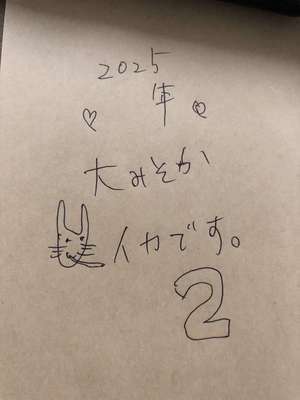 2025
年
大みそか
イカです。
2